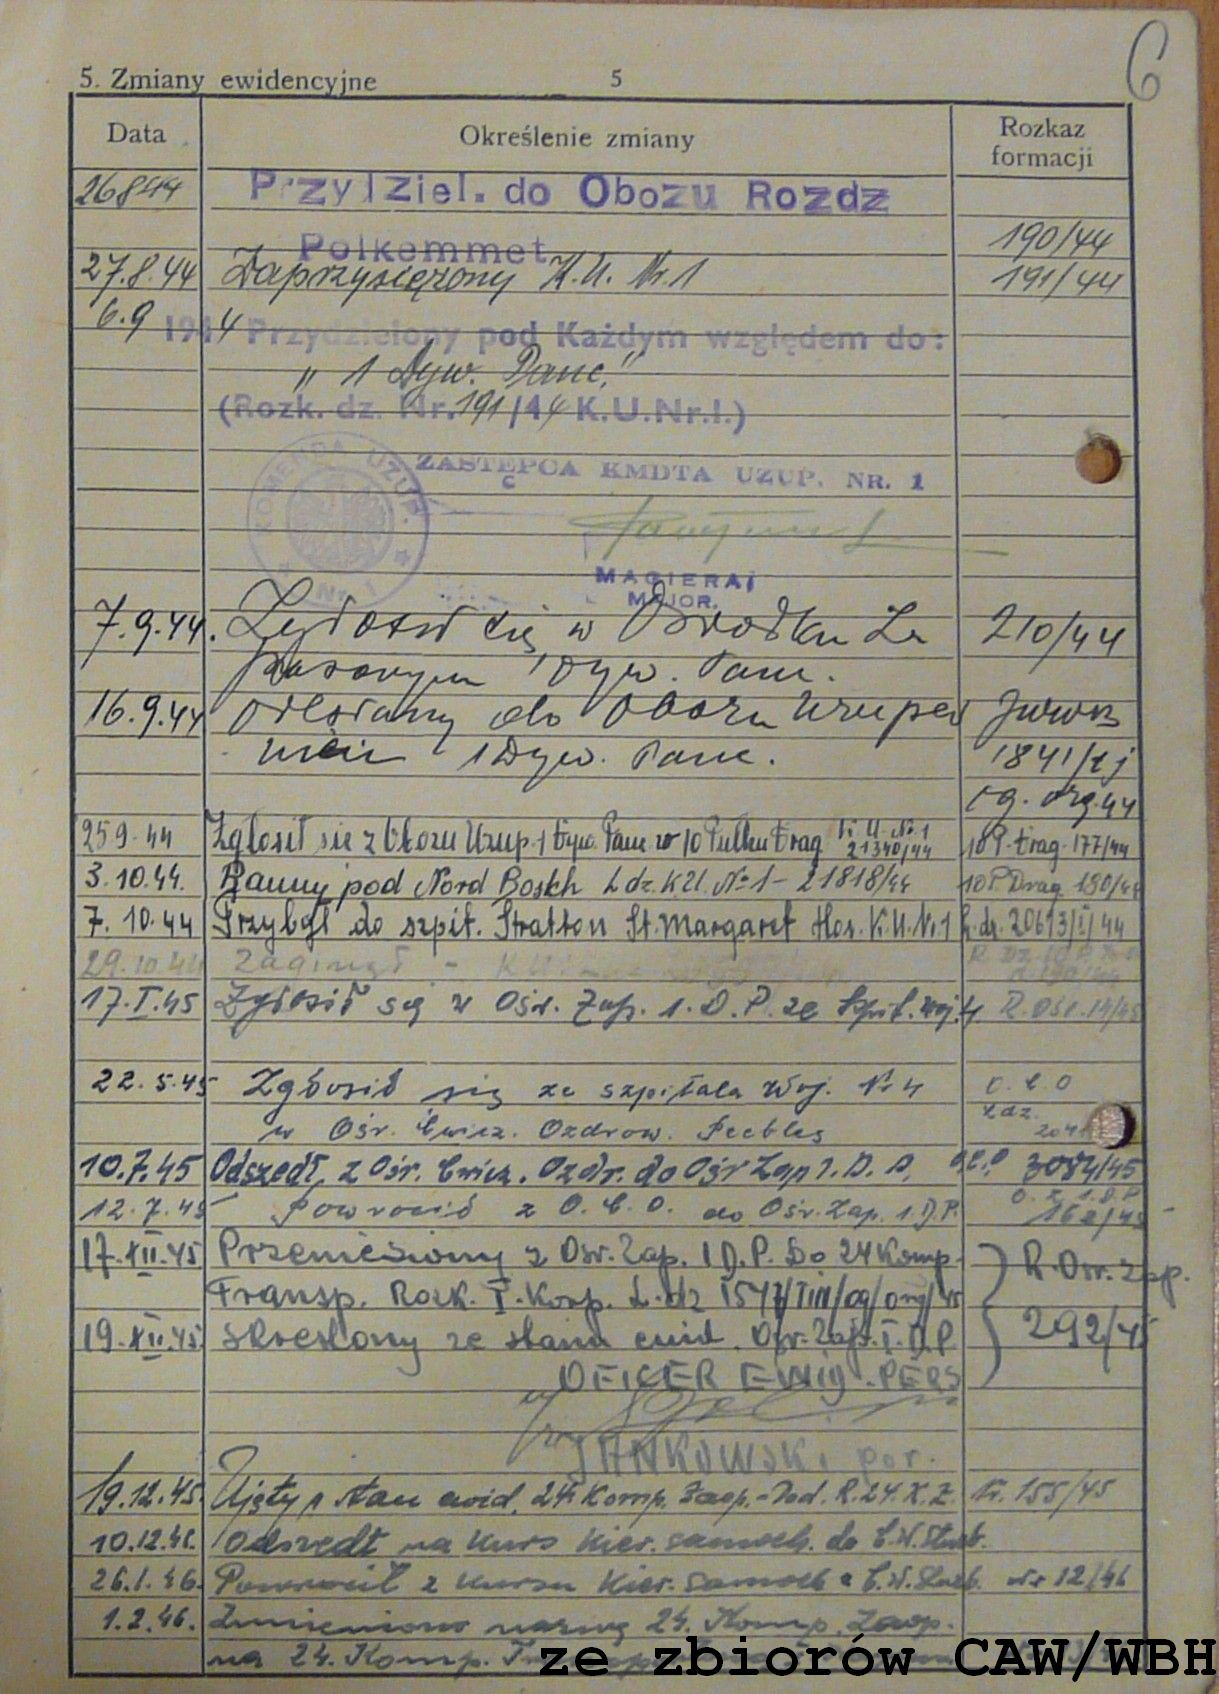 6
5. Zmiany ewidencyjne 5
Data Określenie zmiany Rozkaz formacji
26 8 44 Przydziel. do Obozu Rozdz
Polkemmet 190/44
27.8.44 Zaprzysiężony K.U. Nr.1 191/44
6.9 1944 Przydzielony pod Każdym względem do:
„ 1 Dyw. Panc."
(Rozk. dz. Nr. 191/44 K.U.Nr.I.)
KOMENDA UZUP. Nr 1
ZASTĘPCA KMDTA UZUP. NR. 1
MAGIERA
MAJOR.
7.9.44. Zgłosił się w Ośrodku Za 210/44
pasowym 1 Dyw. Panc.
16.9.44 Odesłany do Obozu Uzupeł
nień 1 Dyw. Panc. 1841/tj
og. org. 44
25 9. 44 Zgłosił się z Obozu Uzup. 1 Dyw. Panc w 10 Pułku Drag K. U. Nr. 1 21340/44 10 P. Drag. 177/44
3. 10. 44. Ranny pod Nord Bosch L dz. K.U. No 1 - 21818/44 10 P. Drag 180/44
7. 10. 44 Przybył do szpit. Stratton St. Margaret Hos. K.U. Nr. 1 L. dz. 20673/I/44
29. 10. 44 Zaginął -
17. I. 45 Zgłosił się w Ośr. Zap. 1. D. P. ze Szpit. woj. 4 R. Ośr. 14/45
22. 5. 45 Zgłosił się ze szpitala Woj. Nr 4 O. C. O
w Ośr. Ćwicz. Ozdrow. Peebles Ldz. 204
10. 7. 45 Odszedł z Ośr. Ćwicz. Ozdr. do Ośr Zap 1. D. P. O.C.O 3084/45
12. 7. 45 Powrócił z O. C. O. do Ośr. Zap. 1. D.P. O. Z. 1. D. P. 162/45
17. XII. 45 Przeniesiony z Ośr. Zap. 1 D. P. do 24 Komp. R. Ośr. Zap.
Transp. Rozk. I. Korp. L. dz 1547/Tjn/og/org/45
19. XII. 45. Skreślony ze stanu ewid. Ośr. Zap. I. D. P. 292/45
OFICER EWID. PERS
JANKOWSKI por.
19. 12. 45. Ujęty w stan ewid. 24. Komp. Zaop. - Rozk. R. 24. K. Z. Nr. 155/45
10. 12. 45. Odszedł na kurs kier. samoch. do
26. 1. 46. Powrócił z kursu kier. samoch z Nr 12/46
1. 2. 46. Zmieniono nazwę 24. Komp. Zaop.
na 24. Komp.
ze zbiorów CAW/WBH